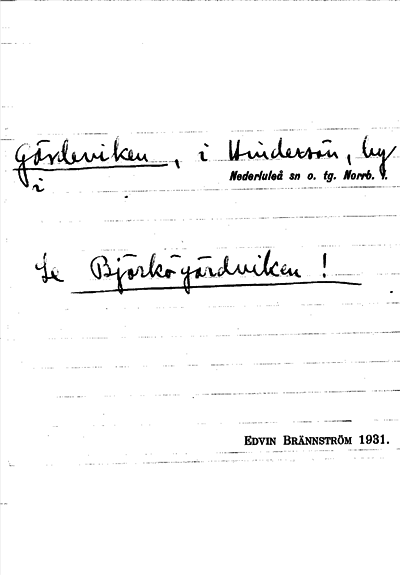 Gårdeviken, i Hindersön, by
i
Nederluleå sn o. tg. Norrb. l.
Se Björkögårdviken !
EDVIN BRÄNNSTRÖM 1931.